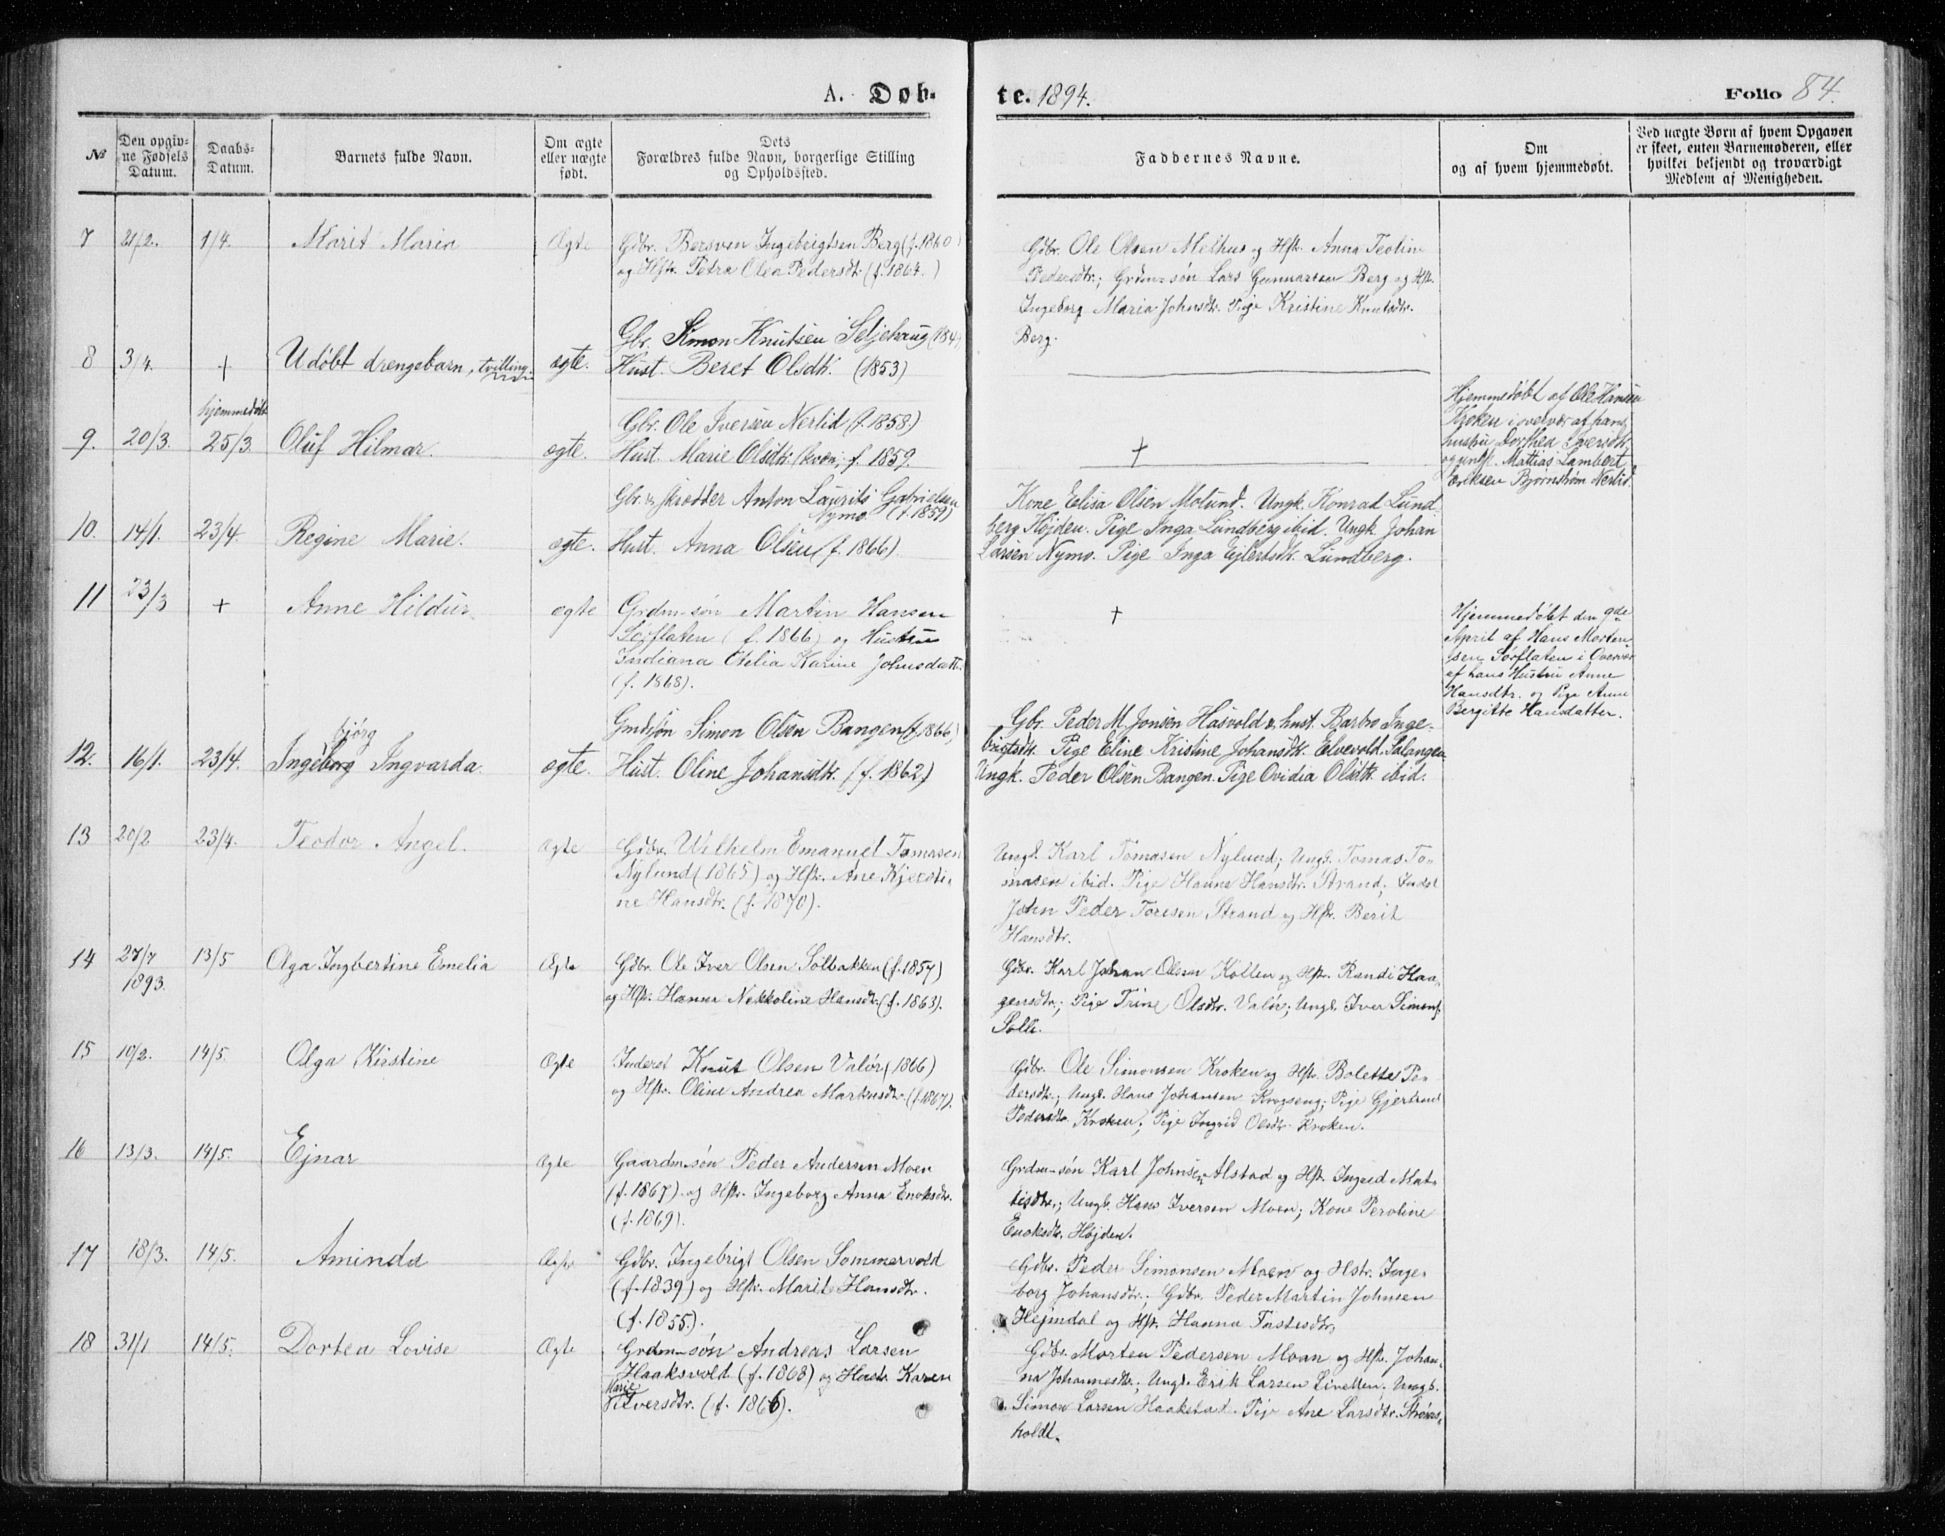 A. Døb-
te. 1894.
Folio 84.
No
Den opgiv-
ne Fødsels
Datum.
Daabs-
Datum.
Barnets fulde Navn.
Om ægte
eller uægte
født.
Dets
Forældres fulde Navn, borgerlige Stilling
og Opholdssted.
Faddernes Navne.
Om
og af hvem hjemmedøbt.
Ved uægte Børn af hvem Opgaven
er skeet, enten Barnemoderen, eller
hvilket betjendt og troværdigt
Medlem af Menigheden.
7 21/2. 1/4. Marit Maria Ægte
Gdbr. Bersven Ingebrigtsen Berg (f. 1860)
og Hstr. Petra Olea Pedersdtr. (f. 1864.)
Gdbr. Ole Olsen Melhus og Hstr. Anna Teoline
Pedersdtr.; Grdm-søn Lars Gunnarsen Berg og Hstr.
Ingeborg Maria Johnsdtr. Pige Kristine Knutsdtr.
Berg.
8 3/4. + Udøbt drengebarn, tvilling. ægte.
Gbr. Simon Knutsen Seljehaug (184
Hust. Beret Olsdtr. (1853)
hjemmedøbt
9. 20/3. 25/3. Oluf Hilmar. ægte.
Gbr. Ole Iversen Nerlid (f. 1858)
Hust. Marie Olsdtr. (kvæn, f. 1859.
+
Hjemmedøbt af Ole Hansen
Kroken i overvær af hans
hustru Dorthea Iversdtr.
og Mattias Lambert
Eriksen Bjørnstrøm Nerlid.
10. 14/1. 23/4. Regine Marie. ægte.
Gbr. & skrædder Anton Laurits Gabrielsen
Nymo (f. 1859)
Hust. Anna Olsen (f. 1866).
Kone Elisa Olsen Molund. Ungk. Konrad Lund
berg Højden. Pige Inga Lundberg ibid. Ungk. Johan
Larsen Nymo. Pige Inga Ejlertsdtr. Lundberg.
11 23/3 + Anne Hildur ægte
Grdm-søn Martin Hansen
Sørflaten (f. 1866) og Hustru
Indiana Otelia Karine Johnsdatt.
(f. 1868).
+
Hjemmedøbt den 9de
April af Hans Morten
sen Sørflaten i Overvær
af hans Hustru Anne
Hansdtr. og Pige Anne
Bergitte Hansdatter.
bjørg
12. 16/1. 23/4. Ingeborg Ingvarda. ægte.
Gmdsøn Simon Olsen Bangen (f. 1866)
Hust. Oline Johansdtr. (f. 1862)
Gbr. Peder M. Jonsen Hasvold & hust. Barbro Inge-
brigtsdtr. Pige Eline Kristine Johansdtr. Elvevold Salangen.
Ungk. Peder Olsen Bangen. Pige Ovidia Olsdtr. ibid.
13 20/2 23/4. Teodor Angel. Ægte
Gdbr. Wilhelm Emanuel Tomasen
Nylund (1865) og Hstr. Ane Kjersti-
ne Hansdtr. (f. 1870).
Ungk. Karl Tomasen Nylund; Ungk. Tomas To-
masen ibid. Pige Hanna Hansdtr. Strand; Inderst
John Peder Toresen Strand og Hstr. Berit
Hansdtr.
14 27/7 13/5 Olga Ingbertine Emelia Ægte
1893.
Gdbr. Ole Iver Olsen Solbakken (f. 1857)
og Hstr. Hanna Nekkoline Hansdtr. (f. 1863).
Gdbr. Karl Johan Olsen Kollen og Hstr. Randi Haa-
gensdtr.; Pige Trine Olsdtr. Valør; Ungk. Iver Simons.
Solli.
15 10/2. 14/5. Olga Kirstine Ægte
Inderst Knut Olsen Valør (1866)
og Hstr. Oline Andrea Markusdtr. (f. 1867).
Gdbr. Ole Simonsen Kroken og Hstr. Bolette Pe-
dersdtr.; Ungk. Hans Johansen Krogseng; Pige Gjertrud
Pedersdtr. Kroken; Pige Ingrid Olsdtr. Kroken.
16 13/3. 14/5. Ejnar Ægte
Gaardm-søn Peder Andersen Moen
(f. 1867) og Hstr. Ingeborg Anna Enoksdtr.
(f. 1869).
Grdm-søn Karl Johnsen Alstad og Hstr. Ingrid Mat-
tisdtr.; Ungk. Hans Iversen Moen; Kone Peroline
Enoksdtr. Højden.
17 18/3. 14/5. Aminda Ægte
Gdbr. Ingebrigt Olsen Sommervold
(f. 1839) og Hstr. Marit Hansdtr.
(f. 1855.).
Gdbr. Peder Simonsen Moen og Hstr. Inge-
borg Johansdtr.; Gdbr. Peder Martin Johnsen
Hejmdal og Hstr. Hanna Fastesdtr.
18 31/1 14/5. Dortea Lovise Ægte
Grdm-søn Andreas Larsen
Haaksvold (f. 1868) og Hustr. Karen
Marie
Siversdtr. (f. 1866).
Gdbr. Morten Pedersen Moan og Hstr. Johan-
na Johannesdtr.; Ungk. Erik Larsen Livelten; Ungk.
Simon Larsen Haakstad. Pige Ane Larsdtr. Strøms-
holdt.